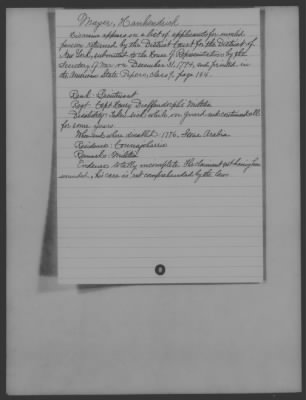 Mayer, Hanbardick
his name appears on a list of applicants for invalid
pension returned by the District Court for the District of
New York, submitted to the House of Representatives by the
Secretary of War on December 31, 1794, and printed in
the American State Papers, class 9, page 124.
Rank: Lieutenant
Regt: Capt Henry Deffendorph's Militia
Disability: Taken sick while on guard and continued ill
for some years.
When and where disabled: 1776, Stone Arabia
Residence: Connajoharrie
Remarks: Militia
Evidence totally incomplete. The claimant not having been
wounded, his case is not comprehended by the law.